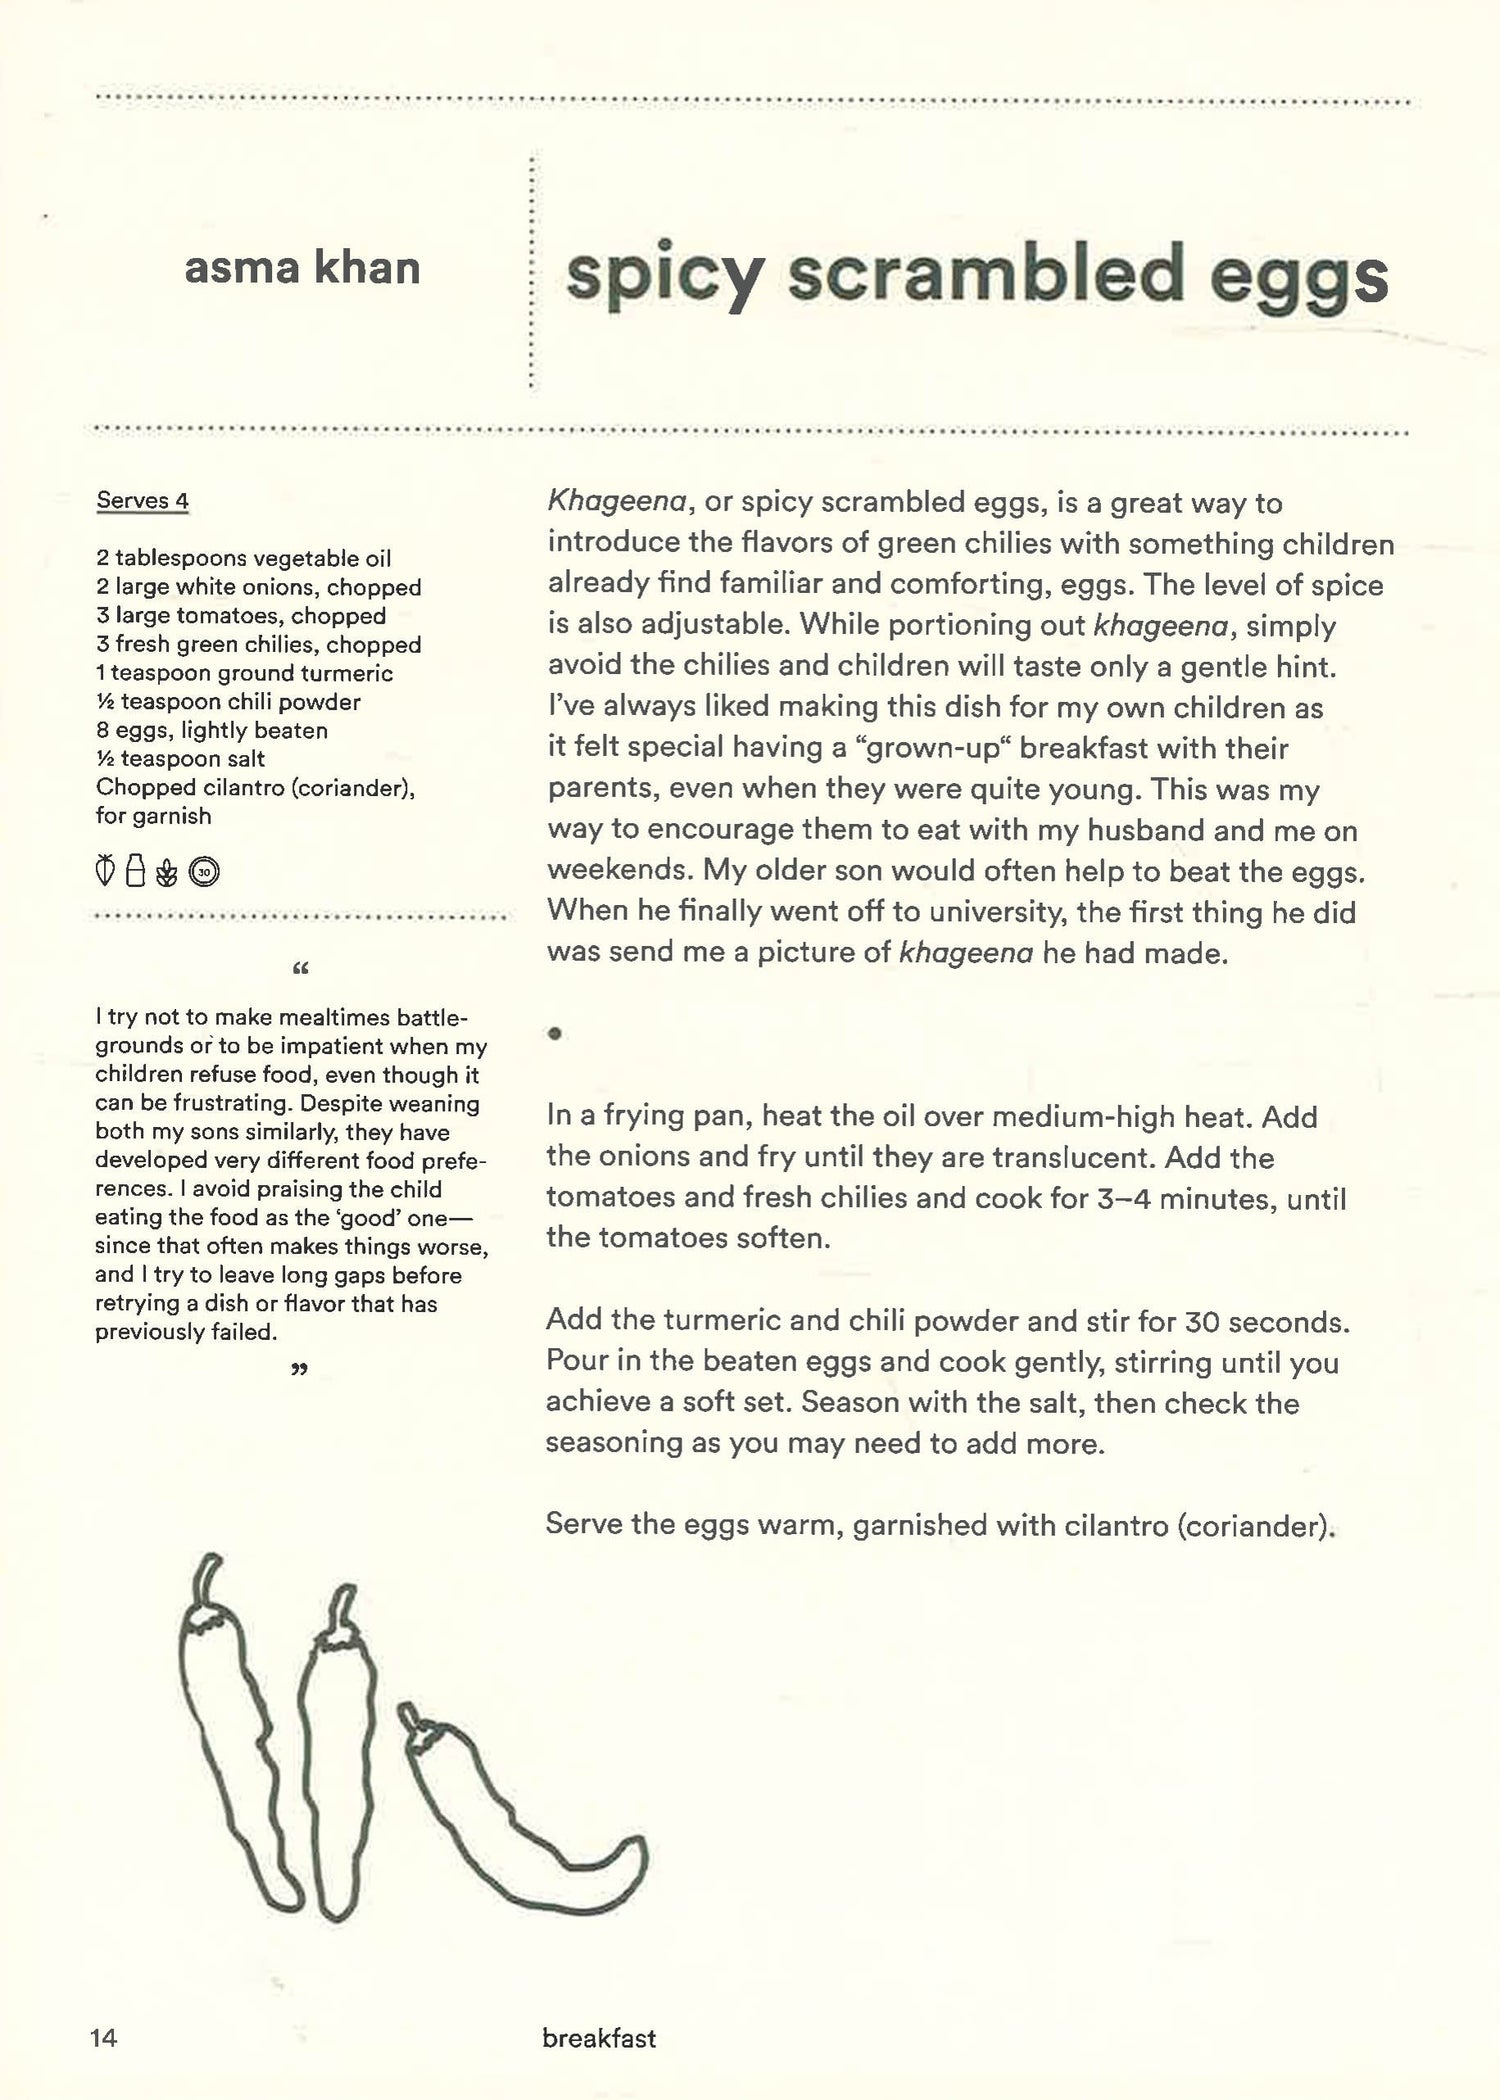 asma khan
spicy scrambled eggs
Serves 4
2 tablespoons vegetable oil
2 large white onions, chopped
3 large tomatoes, chopped
3 fresh green chilies, chopped
1 teaspoon ground turmeric
½ teaspoon chili powder
8 eggs, lightly beaten
½ teaspoon salt
Chopped cilantro (coriander),
for garnish
30
“
I try not to make mealtimes battle-
grounds or to be impatient when my
children refuse food, even though it
can be frustrating. Despite weaning
both my sons similarly, they have
developed very different food prefe-
rences. I avoid praising the child
eating the food as the ‘good’ one—
since that often makes things worse,
and I try to leave long gaps before
retrying a dish or flavor that has
previously failed.
”
Khageena, or spicy scrambled eggs, is a great way to
introduce the flavors of green chilies with something children
already find familiar and comforting, eggs. The level of spice
is also adjustable. While portioning out khageena, simply
avoid the chilies and children will taste only a gentle hint.
I’ve always liked making this dish for my own children as
it felt special having a “grown-up“ breakfast with their
parents, even when they were quite young. This was my
way to encourage them to eat with my husband and me on
weekends. My older son would often help to beat the eggs.
When he finally went off to university, the first thing he did
was send me a picture of khageena he had made.
•
In a frying pan, heat the oil over medium-high heat. Add
the onions and fry until they are translucent. Add the
tomatoes and fresh chilies and cook for 3–4 minutes, until
the tomatoes soften.
Add the turmeric and chili powder and stir for 30 seconds.
Pour in the beaten eggs and cook gently, stirring until you
achieve a soft set. Season with the salt, then check the
seasoning as you may need to add more.
Serve the eggs warm, garnished with cilantro (coriander).
14
breakfast